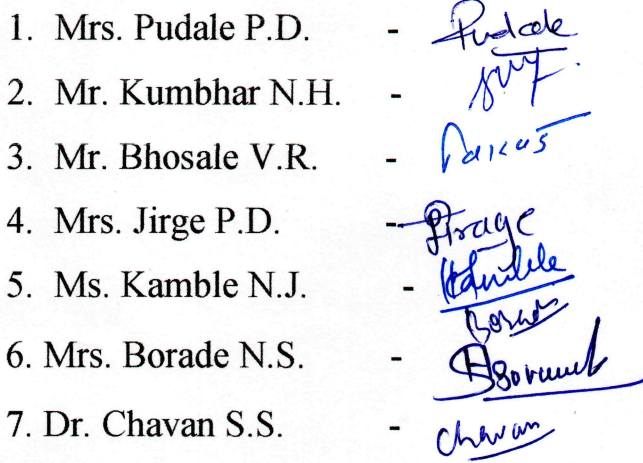 1. Mrs. Pudale P.D. - Pudale
2. Mr. Kumbhar N.H. -
3. Mr. Bhosale V.R. -
4. Mrs. Jirge P.D. -
5. Ms. Kamble N.J. - Kamble
6. Mrs. Borade N.S. -
7. Dr. Chavan S.S. - Chavan